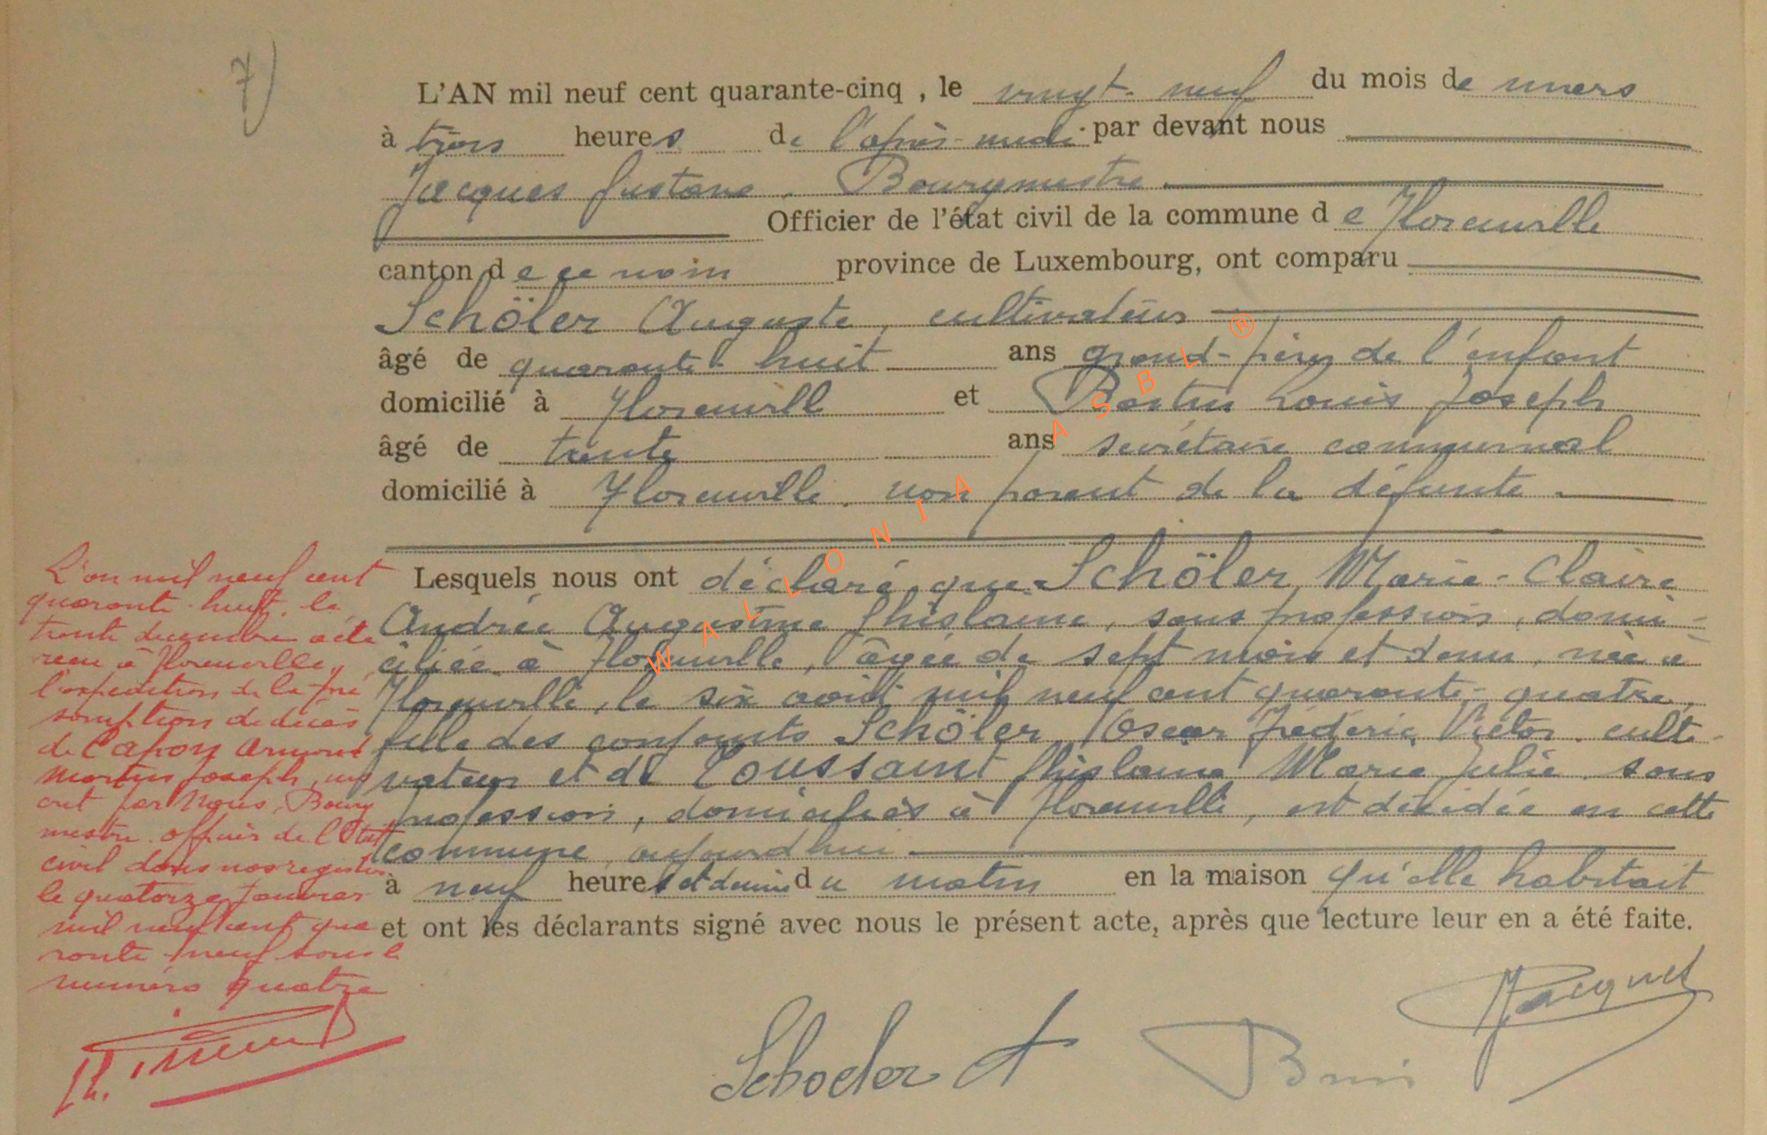 7)
L'AN mil neuf cent quarante-cinq , le vingt-neuf du mois de mars
à trois heures de l'après-midi par devant nous
Jacques Gustave, Bourgmestre
Officier de l'état civil de la commune de Florenville
canton de ce nom province de Luxembourg, ont comparu
Schöler Auguste, cultivateur
âgé de quarante-huit ans grand-père de l'enfant
domicilié à Florenville et Louis Joseph
âgé de trente ans secrétaire communal
domicilié à Florenville, non parent de la défunte.
Lesquels nous ont déclaré que Schöler Marie-Claire
Andrée Augustine Ghislaine, sans profession, domi-
ciliée à Florenville, âgée de sept mois et demi, née à
Florenville, le six août mil neuf cent quarante-quatre,
fille des conjoints Schöler Oscar Frédéric Victor, culti-
vateur et de Toussaint Ghislaine Marie Julie, sans
profession, domiciliés à Florenville, est décédée en cette
commune, aujourd'hui
à neuf heures et demie du matin en la maison qu'elle habitait
et ont les déclarants signé avec nous le présent acte, après que lecture leur en a été faite.
L'an mil neuf cent
quarante-huit, le
trente décembre a été
reçu à Florenville,
l'expédition de la pré
somption de décès
de Capon Armand
Martin Joseph,
par Nous, Bourg
mestre officier de l'Etat
civil dans nos registres
le quatorze janvier
mil neuf cent qua
rante neuf sous le
numéro quatre
Schoeler A
Jacques
WALLONIA ASBL ®